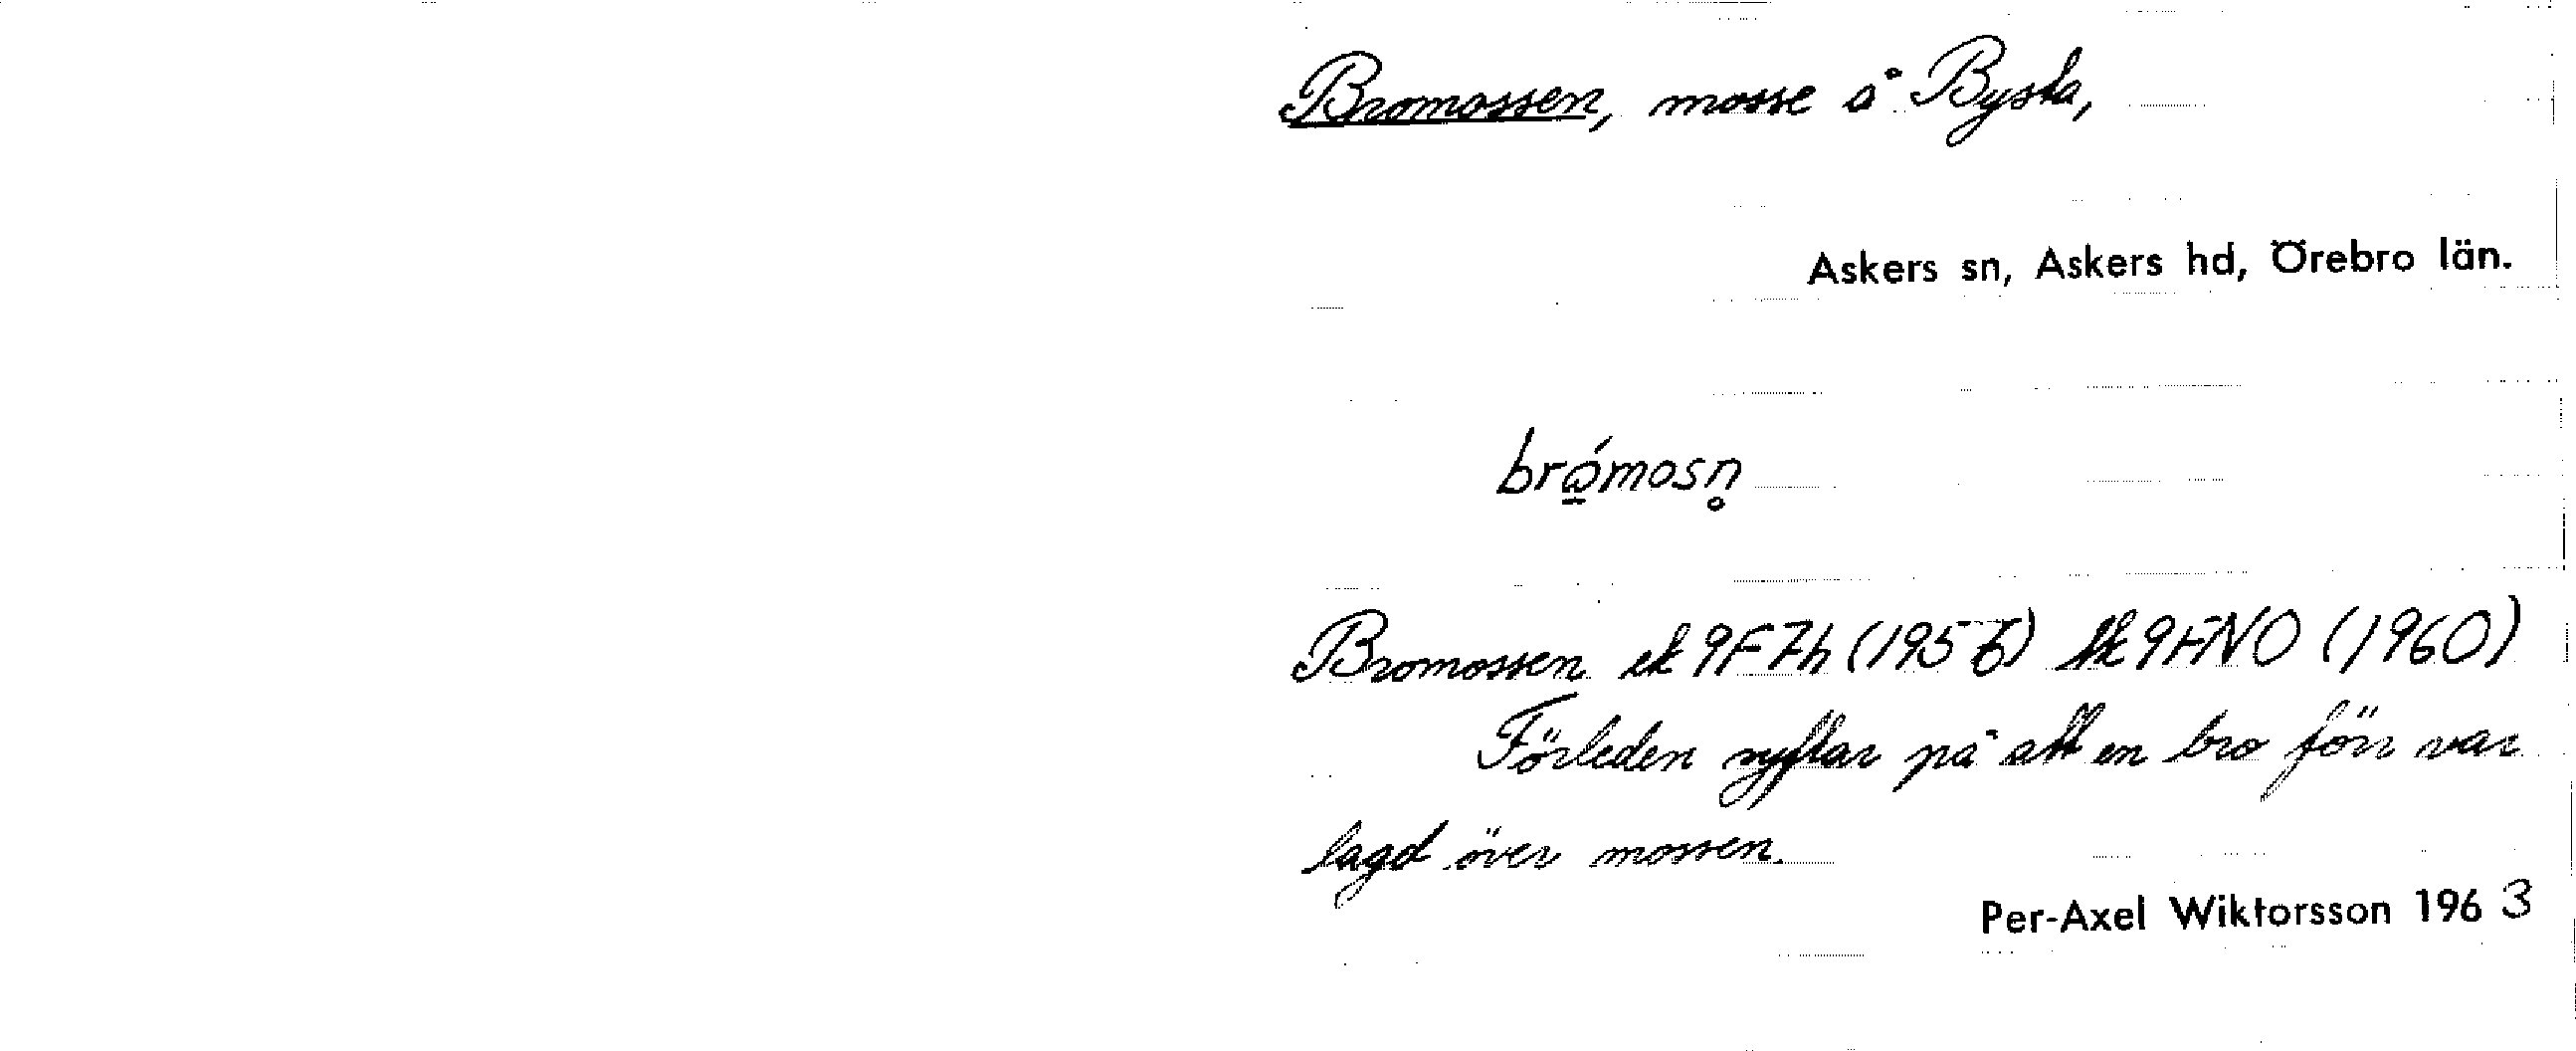 Bromossen, mosse å Bysta,
Askers sn, Askers hd, Örebro län.
brώ̲mosn̥
Bromossen ek 9F7h (1956) tk 9FNO (1960)
Förleden syftar på att en bro förr var
lagd över mossen.
Per-Axel Wiktorsson 1963